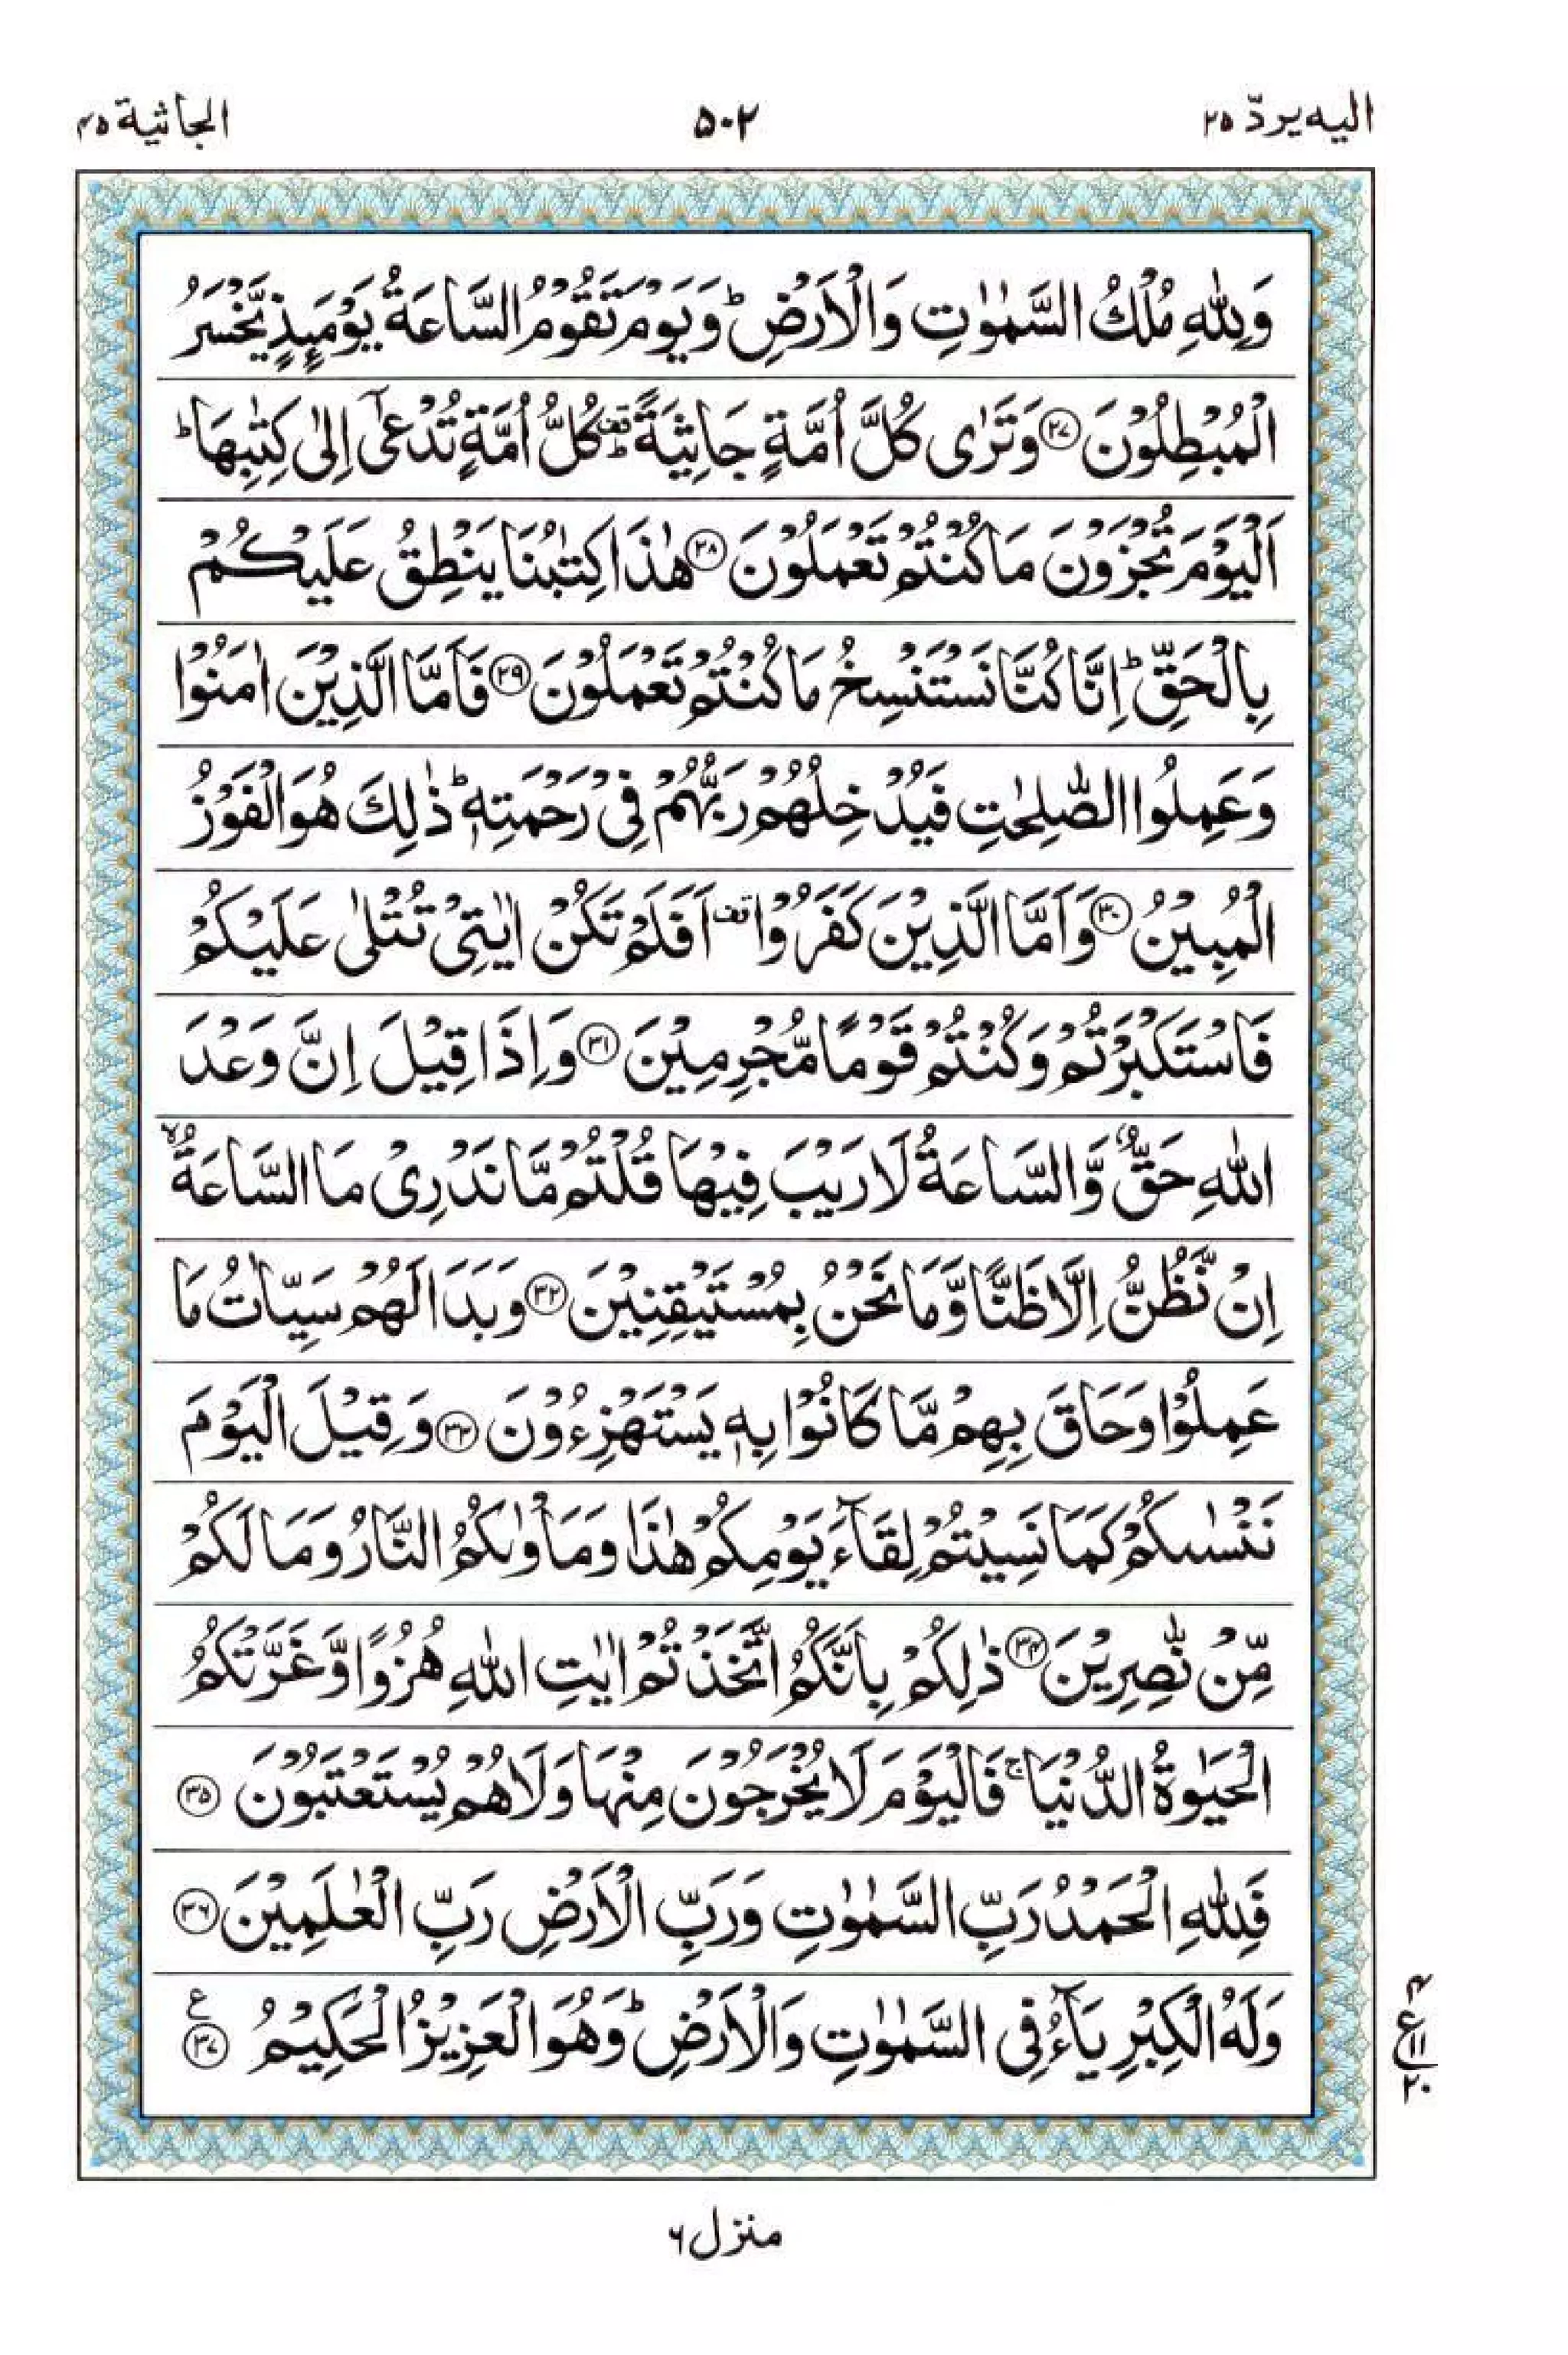 الیه یردّ ۲۵
۵۰۲
الجاثیة ۴۵
وَلِلّٰهِ مُلْكُ السَّمٰوٰتِ وَالْاَرْضِ ؕ وَيَوْمَ تَقُوْمُ السَّاعَةُ يَوْمَىِٕذٍ يَّخْسَرُ
الْمُبْطِلُوْنَ ۲۷ وَتَرٰى كُلَّ اُمَّةٍ جَاثِيَةً قف ؕ كُلُّ اُمَّةٍ تُدْعٰۤى اِلٰى كِتٰبِهَا ؕ
اَلْيَوْمَ تُجْزَوْنَ مَا كُنْتُمْ تَعْمَلُوْنَ ۲۸ هٰذَا كِتٰبُنَا يَنْطِقُ عَلَيْكُمْ
بِالْحَقِّ ؕ اِنَّا كُنَّا نَسْتَنْسِخُ مَا كُنْتُمْ تَعْمَلُوْنَ ۲۹ فَاَمَّا الَّذِيْنَ اٰمَنُوْا
وَعَمِلُوا الصّٰلِحٰتِ فَيُدْخِلُهُمْ رَبُّهُمْ فِيْ رَحْمَتِهٖ ؕ ذٰلِكَ هُوَ الْفَوْزُ
الْمُبِيْنُ ۳۰ وَاَمَّا الَّذِيْنَ كَفَرُوْا قف اَفَلَمْ تَكُنْ اٰيٰتِيْ تُتْلٰى عَلَيْكُمْ
فَاسْتَكْبَرْتُمْ وَكُنْتُمْ قَوْمًا مُّجْرِمِيْنَ ۳۱ وَاِذَا قِيْلَ اِنَّ وَعْدَ
اللّٰهِ حَقٌّ وَّالسَّاعَةُ لَا رَيْبَ فِيْهَا قُلْتُمْ مَّا نَدْرِيْ مَا السَّاعَةُ ۙ
اِنْ نَّظُنُّ اِلَّا ظَنًّا وَّمَا نَحْنُ بِمُسْتَيْقِنِيْنَ ۳۲ وَبَدَا لَهُمْ سَيِّاٰتُ مَا
عَمِلُوْا وَحَاقَ بِهِمْ مَّا كَانُوْا بِهٖ يَسْتَهْزِءُوْنَ ۳۳ وَقِيْلَ الْيَوْمَ
نَنْسٰىكُمْ كَمَا نَسِيْتُمْ لِقَآءَ يَوْمِكُمْ هٰذَا وَمَاْوٰىكُمُ النَّارُ وَمَا لَكُمْ
مِّنْ نّٰصِرِيْنَ ۳۴ ذٰلِكُمْ بِاَنَّكُمُ اتَّخَذْتُمْ اٰيٰتِ اللّٰهِ هُزُوًا وَّغَرَّتْكُمُ
الْحَيٰوةُ الدُّنْيَا ۚ فَالْيَوْمَ لَا يُخْرَجُوْنَ مِنْهَا وَلَا هُمْ يُسْتَعْتَبُوْنَ ۳۵
فَلِلّٰهِ الْحَمْدُ رَبِّ السَّمٰوٰتِ وَرَبِّ الْاَرْضِ رَبِّ الْعٰلَمِيْنَ ۳۶
وَلَهُ الْكِبْرِيَآءُ فِى السَّمٰوٰتِ وَالْاَرْضِ ؕ وَهُوَ الْعَزِيْزُ الْحَكِيْمُ ۳۷ ع
۴
ع ۱۱
۲۰
منزل ۶